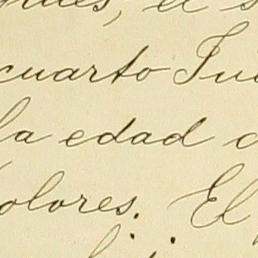 el
cuarto Jui
la edad d
olores. El